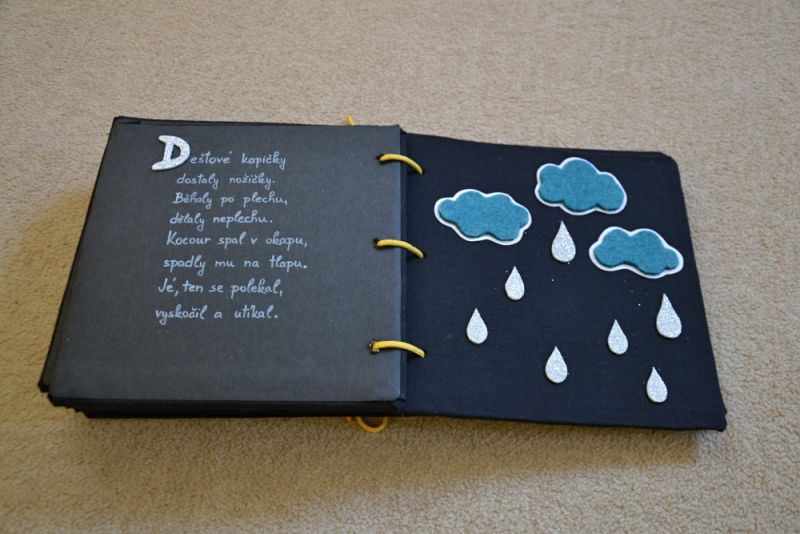 Dešťové kapičky
dostaly nožičky.
Běhaly po plechu,
dělaly neplechu.
Kocour spal v okapu,
spadly mu na tlapu.
Jé, ten se polekal,
vyskočil a utíkal.